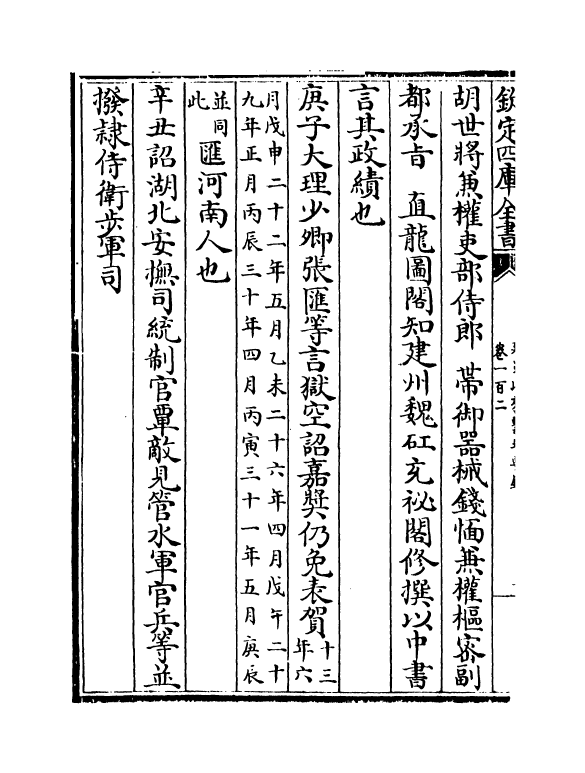 欽定四庫全書
卷一百二
胡世將兼權吏部侍郎　帶御器械錢愐兼權樞密副
都承㫖　直龍圖閣知建州魏矼充祕閣修撰以中書
言其政績也
庚子大理少卿張匯等言獄空詔嘉奬仍免表賀十三年六
月戊申二十二年五月乙未二十六年四月戊午二十
九年正月丙辰三十年四月丙寅三十一年五月庚辰
並同此匯河南人也
辛丑詔湖北安撫司統制官覃敵見管水軍官兵等並
撥隷侍衛步軍司